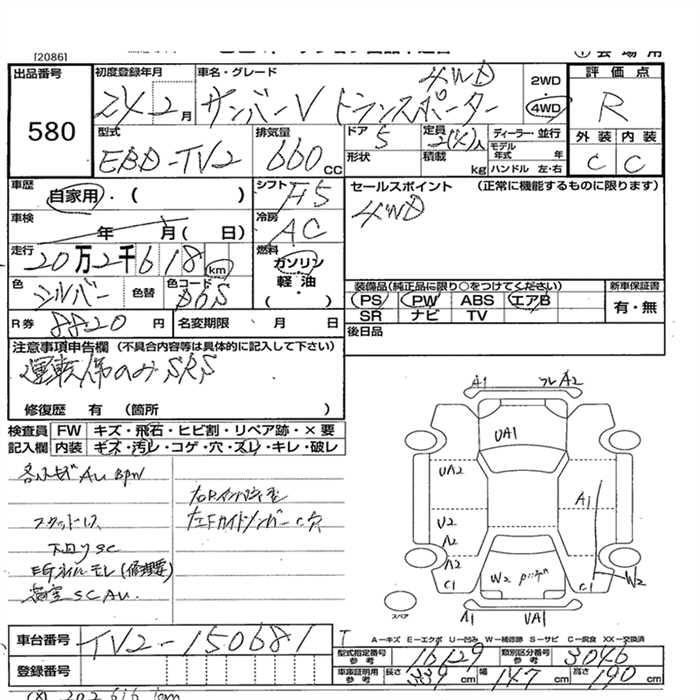 [2086]
出品番号 初度登録年月 車名・グレード 2WD 評価点
580 24 2月 サンバーV トランスポーター 4WD 4WD R
型式 排気量 ドア 定員 ディーラー・並行 外装 内装
EBD-TV2 660cc 5 2(4)人 モデル年式 年 C C
形状 積載 kg ハンドル 左・右
車歴 自家用・( ) シフト F5 セールスポイント (正常に機能するものに限ります)
車検 年 月( 日) 冷房 AC 4WD
走行 20万2千618km 燃料 ガソリン 軽油・( )
色 シルバー 色替 色コード 装備品(純正品に限り○をつけてください) 新車保証書
PS PW ABS エアB 有・無
SR ナビ TV
R券 8820円 名変期限 月 日 後日品
注意事項申告欄 (不具合内容等は具体的に記入して下さい)
運転席のみSRS
修復歴 有 (箇所 )
検査員 FW キズ・飛石・ヒビ割・リペア跡・×要
記入欄 内装 キズ・汚レ・コゲ・穴・ズレ・キレ・破レ
A1 フレA2
UA1
UA2
A1
U2
A2
A2
C1 W2 C1 W2
スペア A1 UA1
下回りSC
EGオイルモレ(修理要)
車台番号 TV2-150681
A−キズ E−エクボ U−凹み W−補修跡 S−サビ C−腐食 XX−交換済
登録番号 型式指定番号 参考 16129 類別区分番号 参考 3046
車庫証明用 参考 長さ 339cm 幅 147cm 高さ 190cm
(8) 202616km